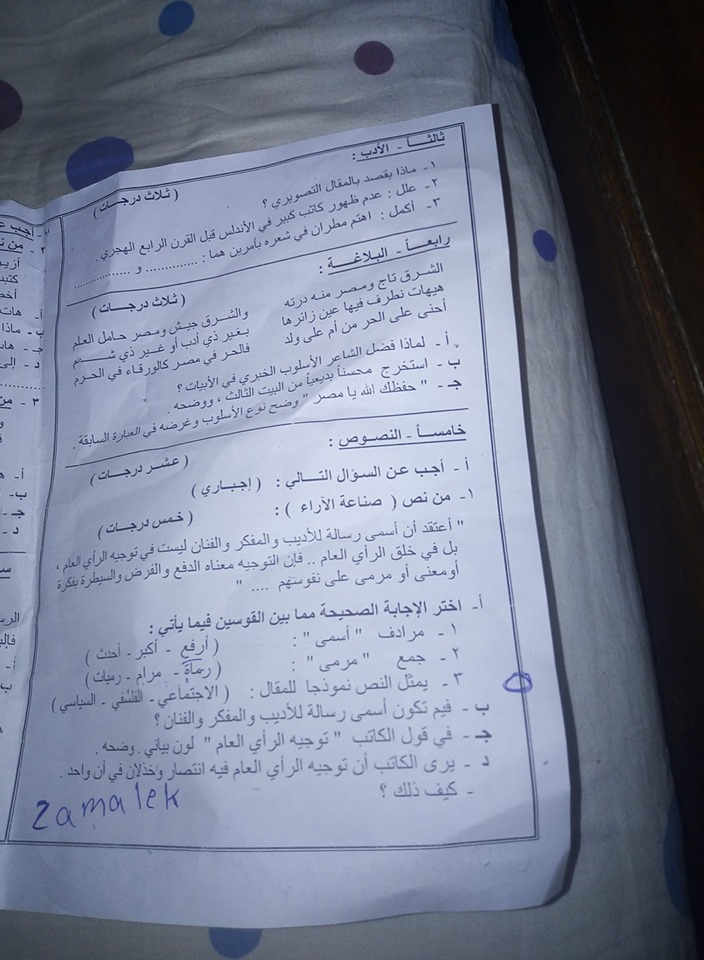 ثالثــاً - الأدب :
( ثلاث درجـات )
١- ماذا يقصد بالمقال التصويري ؟
٢- علل : عدم ظهور كاتب كبير في الأندلس قبل القرن الرابع الهجري .
٣- أكمل : اهتم مطران في شعره بأمرين هما : .............. و ..............
رابعــاً - البلاغـة :
( ثلاث درجـات )
الشرق تاج ومصر منه درته والشرق جيش ومصر حامل العلم
هيهات تطرف فيها عين زائرها بغير ذي أدب أو غير ذي شمم
أحنى على الحر من أم على ولد فالحر في مصر كالورقاء في الحرم
أ - لماذا فضل الشاعر الأسلوب الخبري في الأبيات ؟
ب - استخرج محسناً بديعياً من البيت الثالث ، ووضحه .
جـ - " حفظك الله يا مصر " وضح نوع الأسلوب وغرضه في العبارة السابقة .
خامسـاً - النصـوص :
( عشر درجات )
أ - أجب عن السؤال التـالي : ( إجباري )
١- من نص ( صناعة الآراء ) :
( خمس درجات )
" أعتقد أن أسمى رسالة للأديب والمفكر والفنان ليست في توجيه الرأي العام ،
بل في خلق الرأي العام .. فإن التوجيه معناه الدفع والفرض والسيطرة بفكرة
أومعنى أو مرمى على نفوسهم .... "
أ - اختر الإجابة الصحيحة مما بين القوسين فيما يأتي :
١ - مرادف " أسمى " : ( أرفع - أكبر - أحدث )
٢ - جمع " مرمى " : ( رماة - مرام - رميات )
٣ - يمثل النص نموذجا للمقال : ( الاجتماعي - الفلسفي - السياسي )
ب - فيم تكون أسمى رسالة للأديب والمفكر والفنان ؟
جـ - في قول الكاتب " توجيه الرأي العام " لون بياني . وضحه .
د - يرى الكاتب أن توجيه الرأي العام فيه انتصار وخذلان في آن واحد .
- كيف ذلك ؟
zamalek